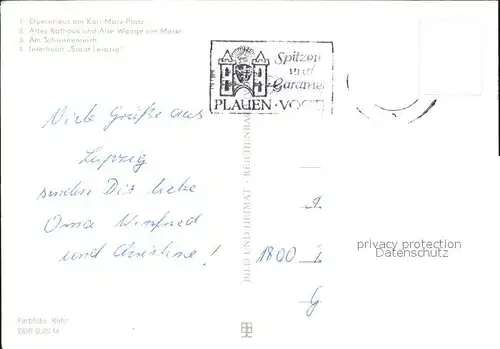 1. Opernhaus am Karl-Marx-Platz
2. Altes Rathaus und Alte Waage am Markt
3. Am Schwanenteich
4. Interhotel „Stadt Leipzig"
Spitzen
und
Gardinen
PLAUEN · VOGTL
Viele Grüße aus
Leipzig
senden Dir liebe
Oma Winfried
und Christine!
BILD UND HEIMAT · REICHENBACH
A
1800
G
privacy protection
Datenschutz
Farbfoto: Kühn
DDR 0,80 M